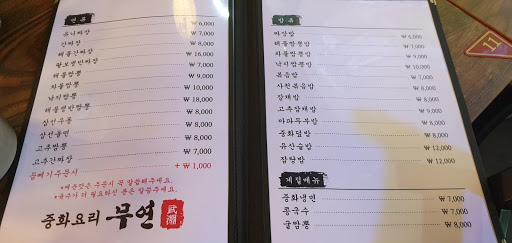 면 류
유니짜장 ₩ 6,000
간짜장 ₩ 7,000
해물간짜장 ₩ 8,000
짬뽕 ₩ 7,000
해물짬뽕 ₩ 9,000
차돌짬뽕 ₩ 10,000
낙지짬뽕
해물쟁반짬뽕
삼선우동 ₩ 8,000
삼선울면 ₩ 8,000
고추짬뽕 ₩ 8,000
고추간짜장 ₩ 7,000
곱빼기주문시 + ₩ 1,000
*매운맛은 주문시 꼭 말씀해주세요.
*국수가 더 필요하신 분은 말씀주세요.
중화요리 무연
밥 류
짜장밥 ₩ 6,000
해물짬뽕밥
차돌짬뽕밥
낙지짬뽕밥
볶음밥
사천볶음밥
잡채밥
고추잡채밥
마파두부밥
중화덮밥 ₩ 8,000
유산슬밥 ₩ 12,000
잡탕밥 ₩ 12,000
계절메뉴
중화냉면 ₩ 7,000
콩국수 ₩ 7,000
굴짬뽕 ₩ 8,000
11